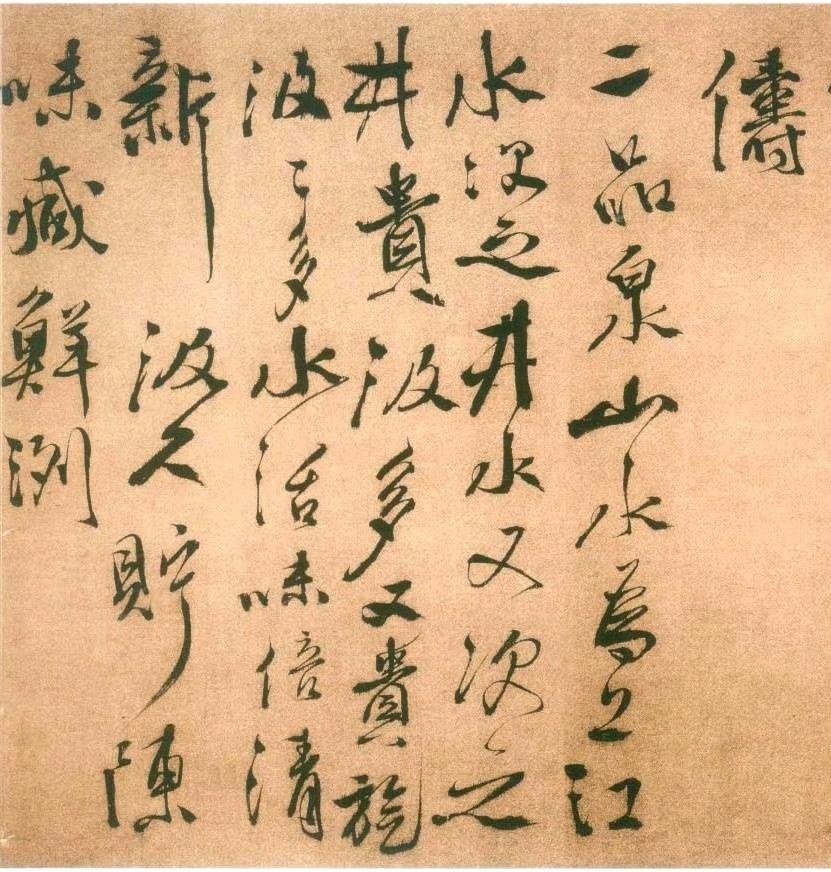 儔
二品泉山水為上江
水次之井水又次之
井貴汲多又貴旋
汲汲多水活味倍清
新汲久貯陳
味減鮮冽